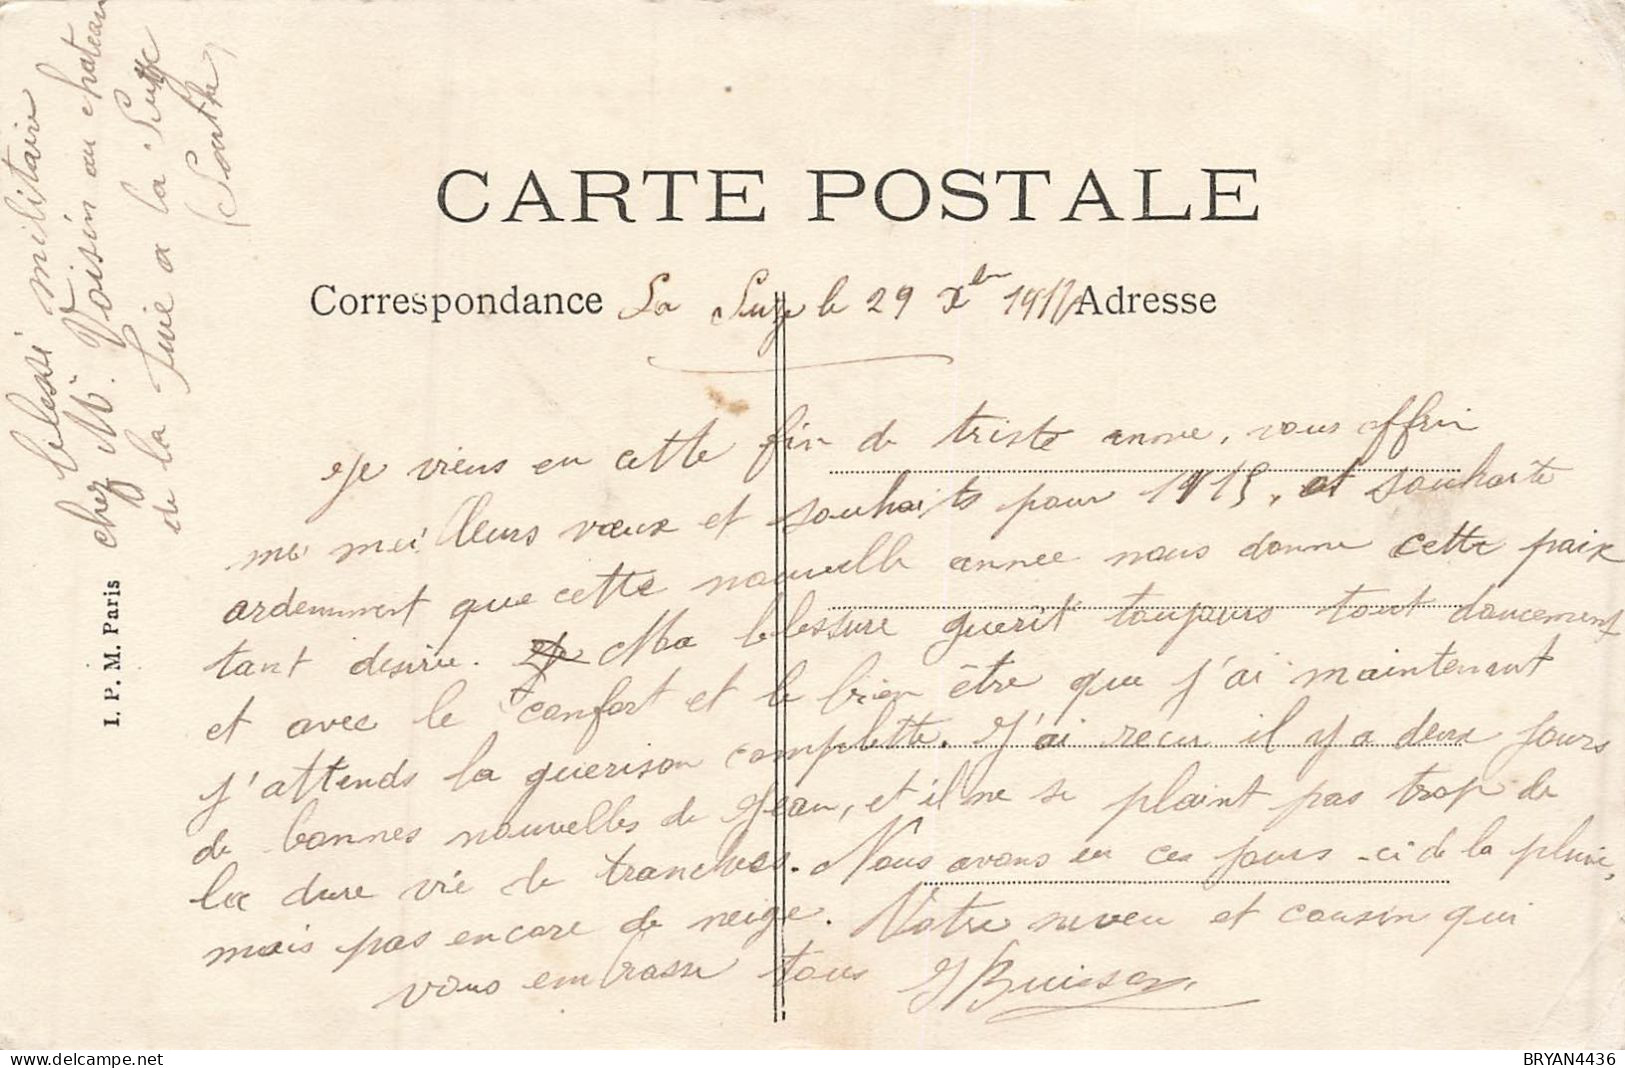 blessé militaire
chez M. Voisin au chateau
de la Fuie a la Suze
(Sarthe)
CARTE POSTALE
Correspondance La Suze le 29 Xbre 1914 Adresse
Je viens en cette fin de triste annee, vous offrir
mes meilleurs vœux et souhaits pour 1915, et souhaite
ardemment que cette nouvelle annee nous donne cette paix
tant desirée. Ma blessure guerit toujours tout doucement
et avec le confort et le bien être que j'ai maintenant
j'attends la guerison complette. J'ai recu il y a deux jours
de bonnes nouvelles de Jean, et il ne se plaint pas trop de
la dure vie de tranchees. Nous avons eu ces jours-ci de la pluie,
mais pas encore de neige. Votre neveu et cousin qui
vous embrasse tous J Buisson
I. P. M. Paris
delcampe.net
BRYAN4436